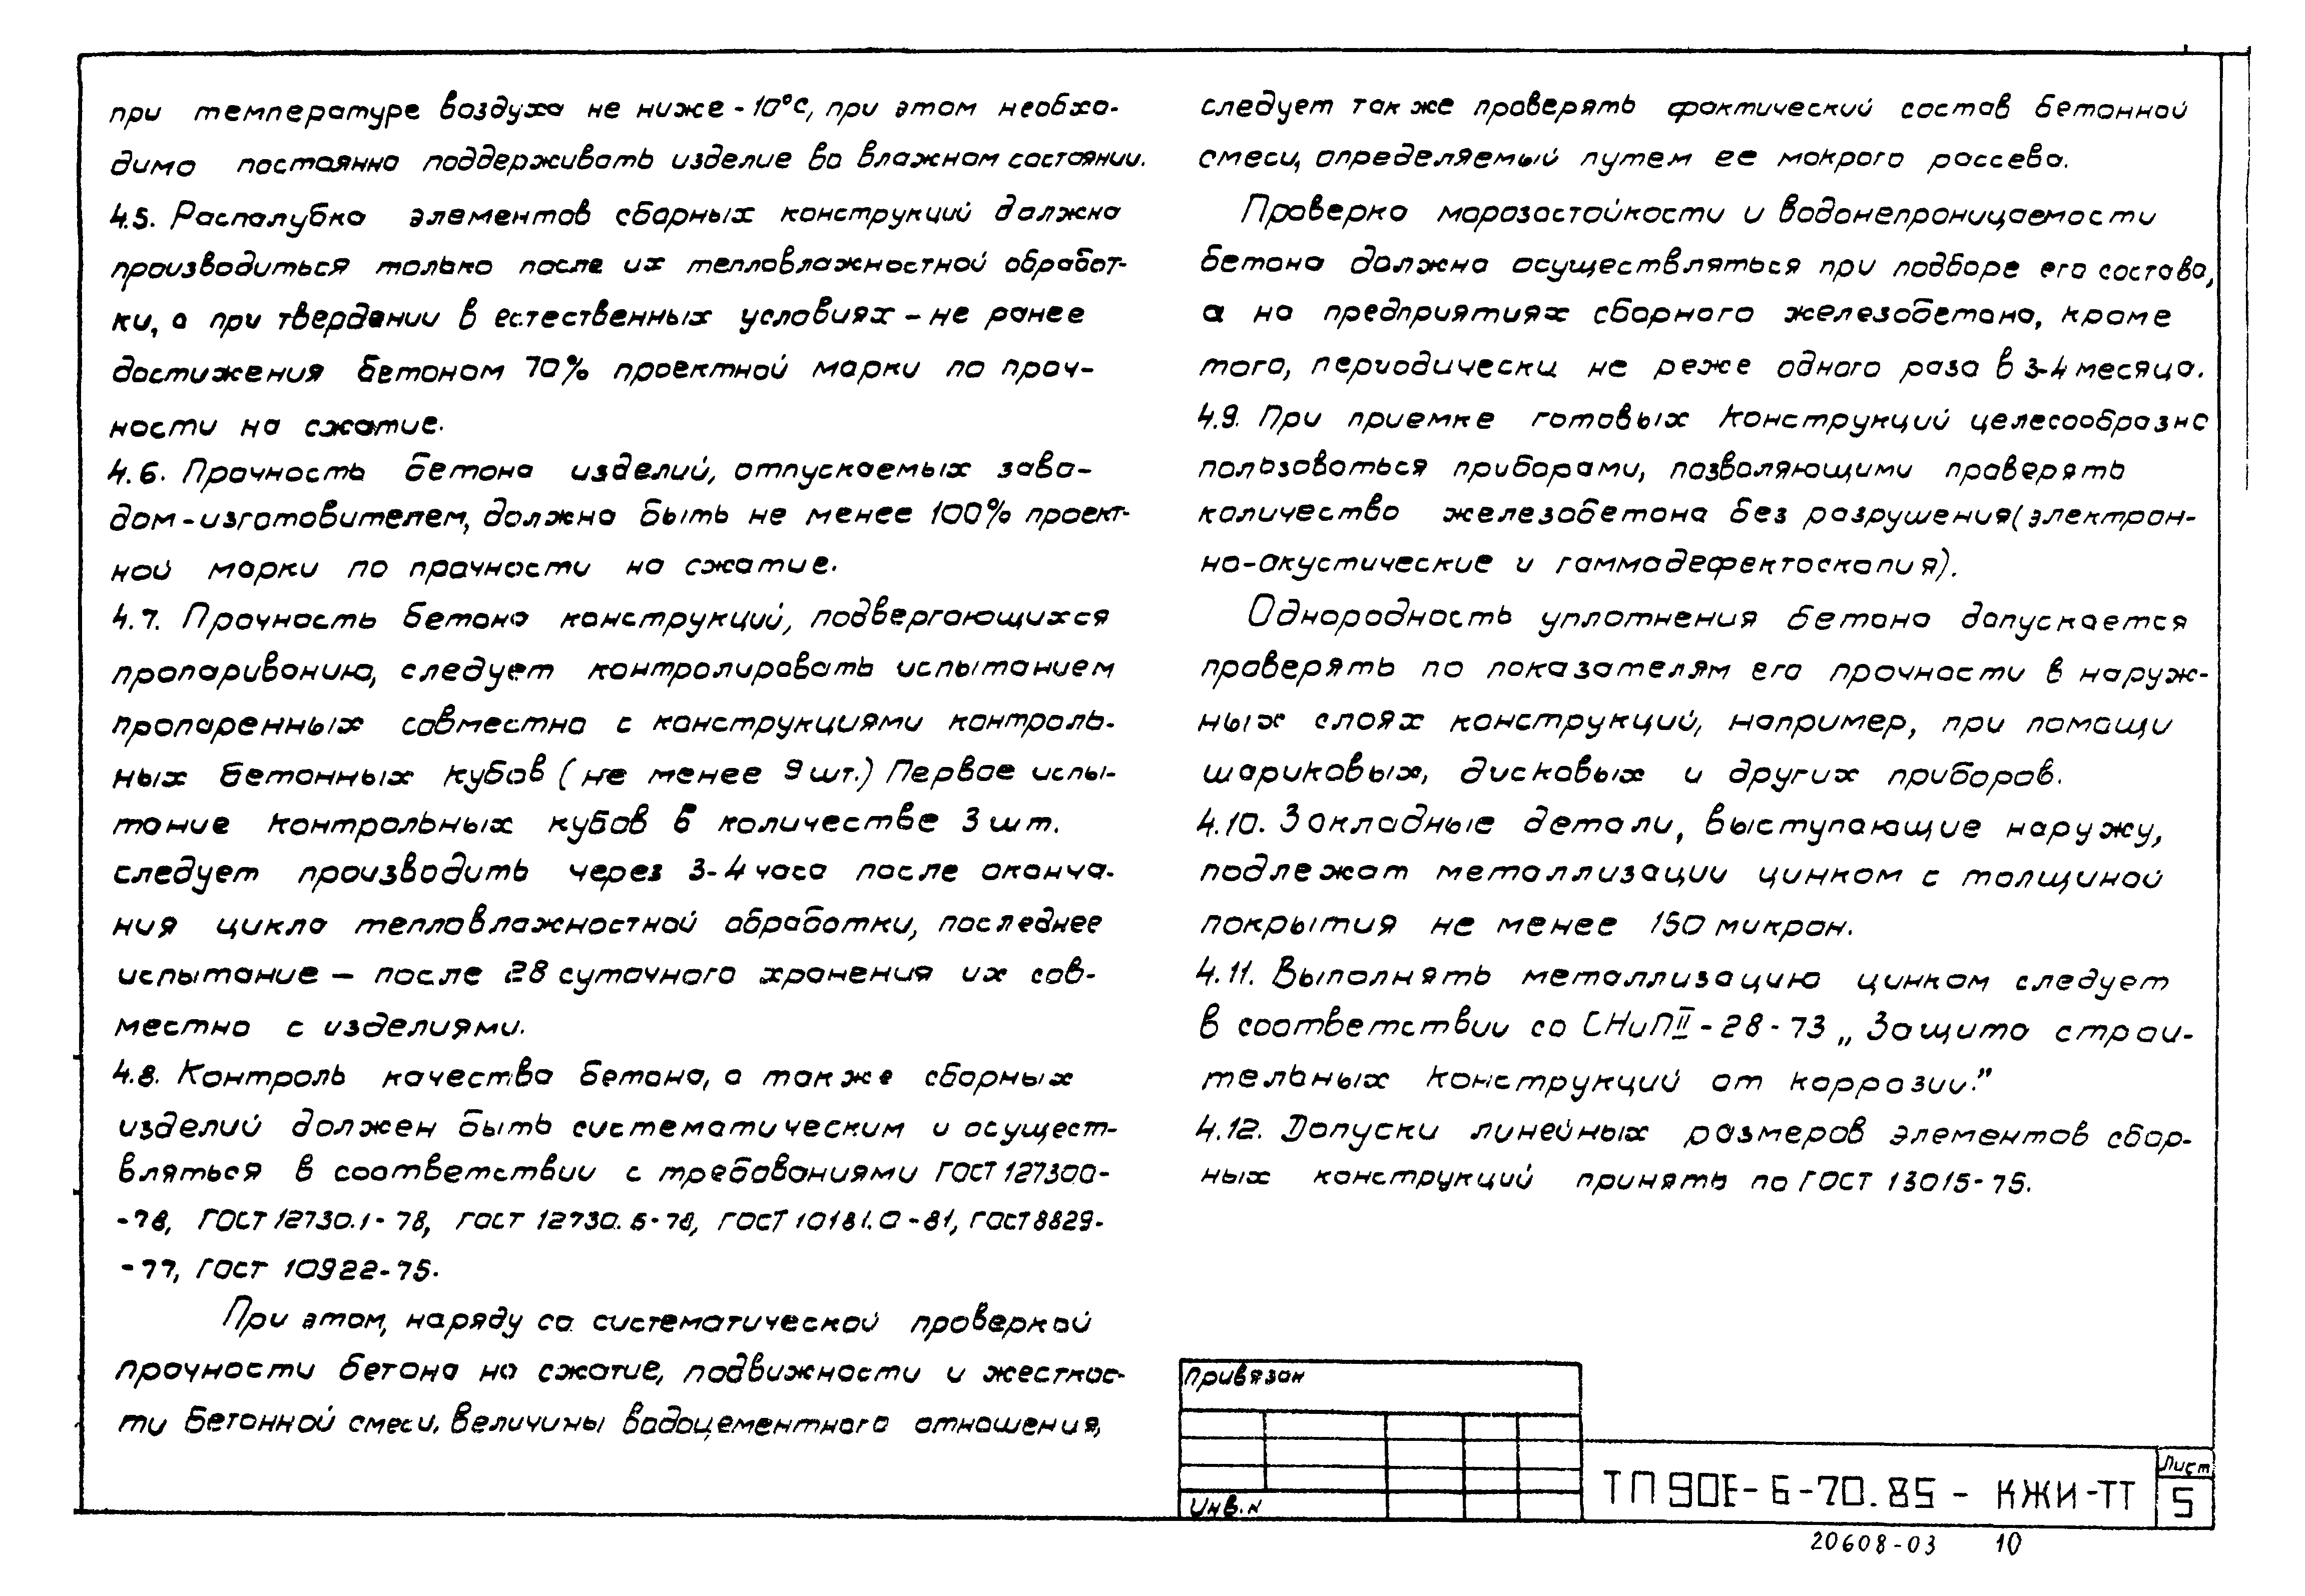 при температуре воздуха не ниже -10°С, при этом необхо-
димо постоянно поддерживать изделие во влажном состоянии.
4.5. Распалубка элементов сборных конструкций должна
производиться только после их тепловлажностной обработ-
ки, а при твердении в естественных условиях – не ранее
достижения бетоном 70% проектной марки по проч-
ности на сжатие.
4.6. Прочность бетона изделий, отпускаемых заво-
дом-изготовителем, должна быть не менее 100% проект-
ной марки по прочности на сжатие.
4.7. Прочность бетона конструкций, подвергающихся
пропариванию, следует контролировать испытанием
пропаренных совместно с конструкциями контроль-
ных бетонных кубов (не менее 9 шт.) Первое испы-
тание контрольных кубов в количестве 3 шт.
следует производить через 3-4 часа после оконча-
ния цикла тепловлажностной обработки, последнее
испытание – после 28 суточного хранения их сов-
местно с изделиями.
4.8. Контроль качества бетона, а также сборных
изделий должен быть систематическим и осущест-
вляться в соответствии с требованиями ГОСТ 12730.0-
-78, ГОСТ 12730.1-78, ГОСТ 12730.5-78, ГОСТ 10181.0-81, ГОСТ 8829-
-77, ГОСТ 10922-75.
При этом, наряду со систематической проверкой
прочности бетона на сжатие, подвижности и жесткос-
ти бетонной смеси, величины водоцементного отношения,
следует так же проверять фактический состав бетонной
смеси, определяемый путем ее мокрого рассева.
Проверка морозостойкости и водонепроницаемости
бетона должна осуществляться при подборе его состава,
а на предприятиях сборного железобетона, кроме
того, периодически не реже одного раза в 3-4 месяца.
4.9. При приемке готовых конструкций целесообразно
пользоваться приборами, позволяющими проверять
количество железобетона без разрушения (электрон-
но-акустические и гаммадефектоскопия).
Однородность уплотнения бетона допускается
проверять по показателям его прочности в наруж-
ных слоях конструкций, например, при помощи
шариковых, дисковых и других приборов.
4.10. Закладные детали, выступающие наружу,
подлежат металлизации цинком с толщиной
покрытия не менее 150 микрон.
4.11. Выполнять металлизацию цинком следует
в соответствии со СНиП II-28-73 „Защита строи-
тельных конструкций от коррозии."
4.12. Допуски линейных размеров элементов сбор-
ных конструкций принять по ГОСТ 13015-75.
Привязан
Инв. N
ТП 90Е-6-70.85 - КЖИ-ТТ
Лист
5
20608-03 10